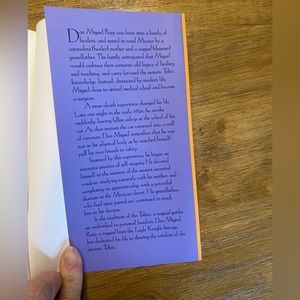 Don Miguel Ruiz was born into a family of
healers, and raised in rural Mexico by a
curandera (healer) mother and a nagual (shaman)
grandfather. The family anticipated that Miguel
would embrace their centuries-old legacy of healing
and teaching, and carry forward the esoteric Toltec
knowledge. Instead, distracted by modern life,
Miguel chose to attend medical school and become
a surgeon.
A near-death experience changed his life.
Late one night in the early 1970s, he awoke
suddenly, having fallen asleep at the wheel of his
car. At that instant the car careened into a wall
of concrete. Don Miguel remembers that he was
not in his physical body as he watched himself
pull his two friends to safety.
Stunned by this experience, he began an
intensive practice of self-inquiry. He devoted
himself to the mastery of the ancient ancestral
wisdom, studying earnestly with his mother, and
completing an apprenticeship with a powerful
shaman in the Mexican desert. His grandfather,
who had since passed on, continued to teach
him in his dreams.
In the tradition of the Toltec, a nagual guides
an individual to personal freedom. Don Miguel
Ruiz is a nagual from the Eagle Knight lineage,
who has dedicated his life to sharing the wisdom of the
ancient Toltec.